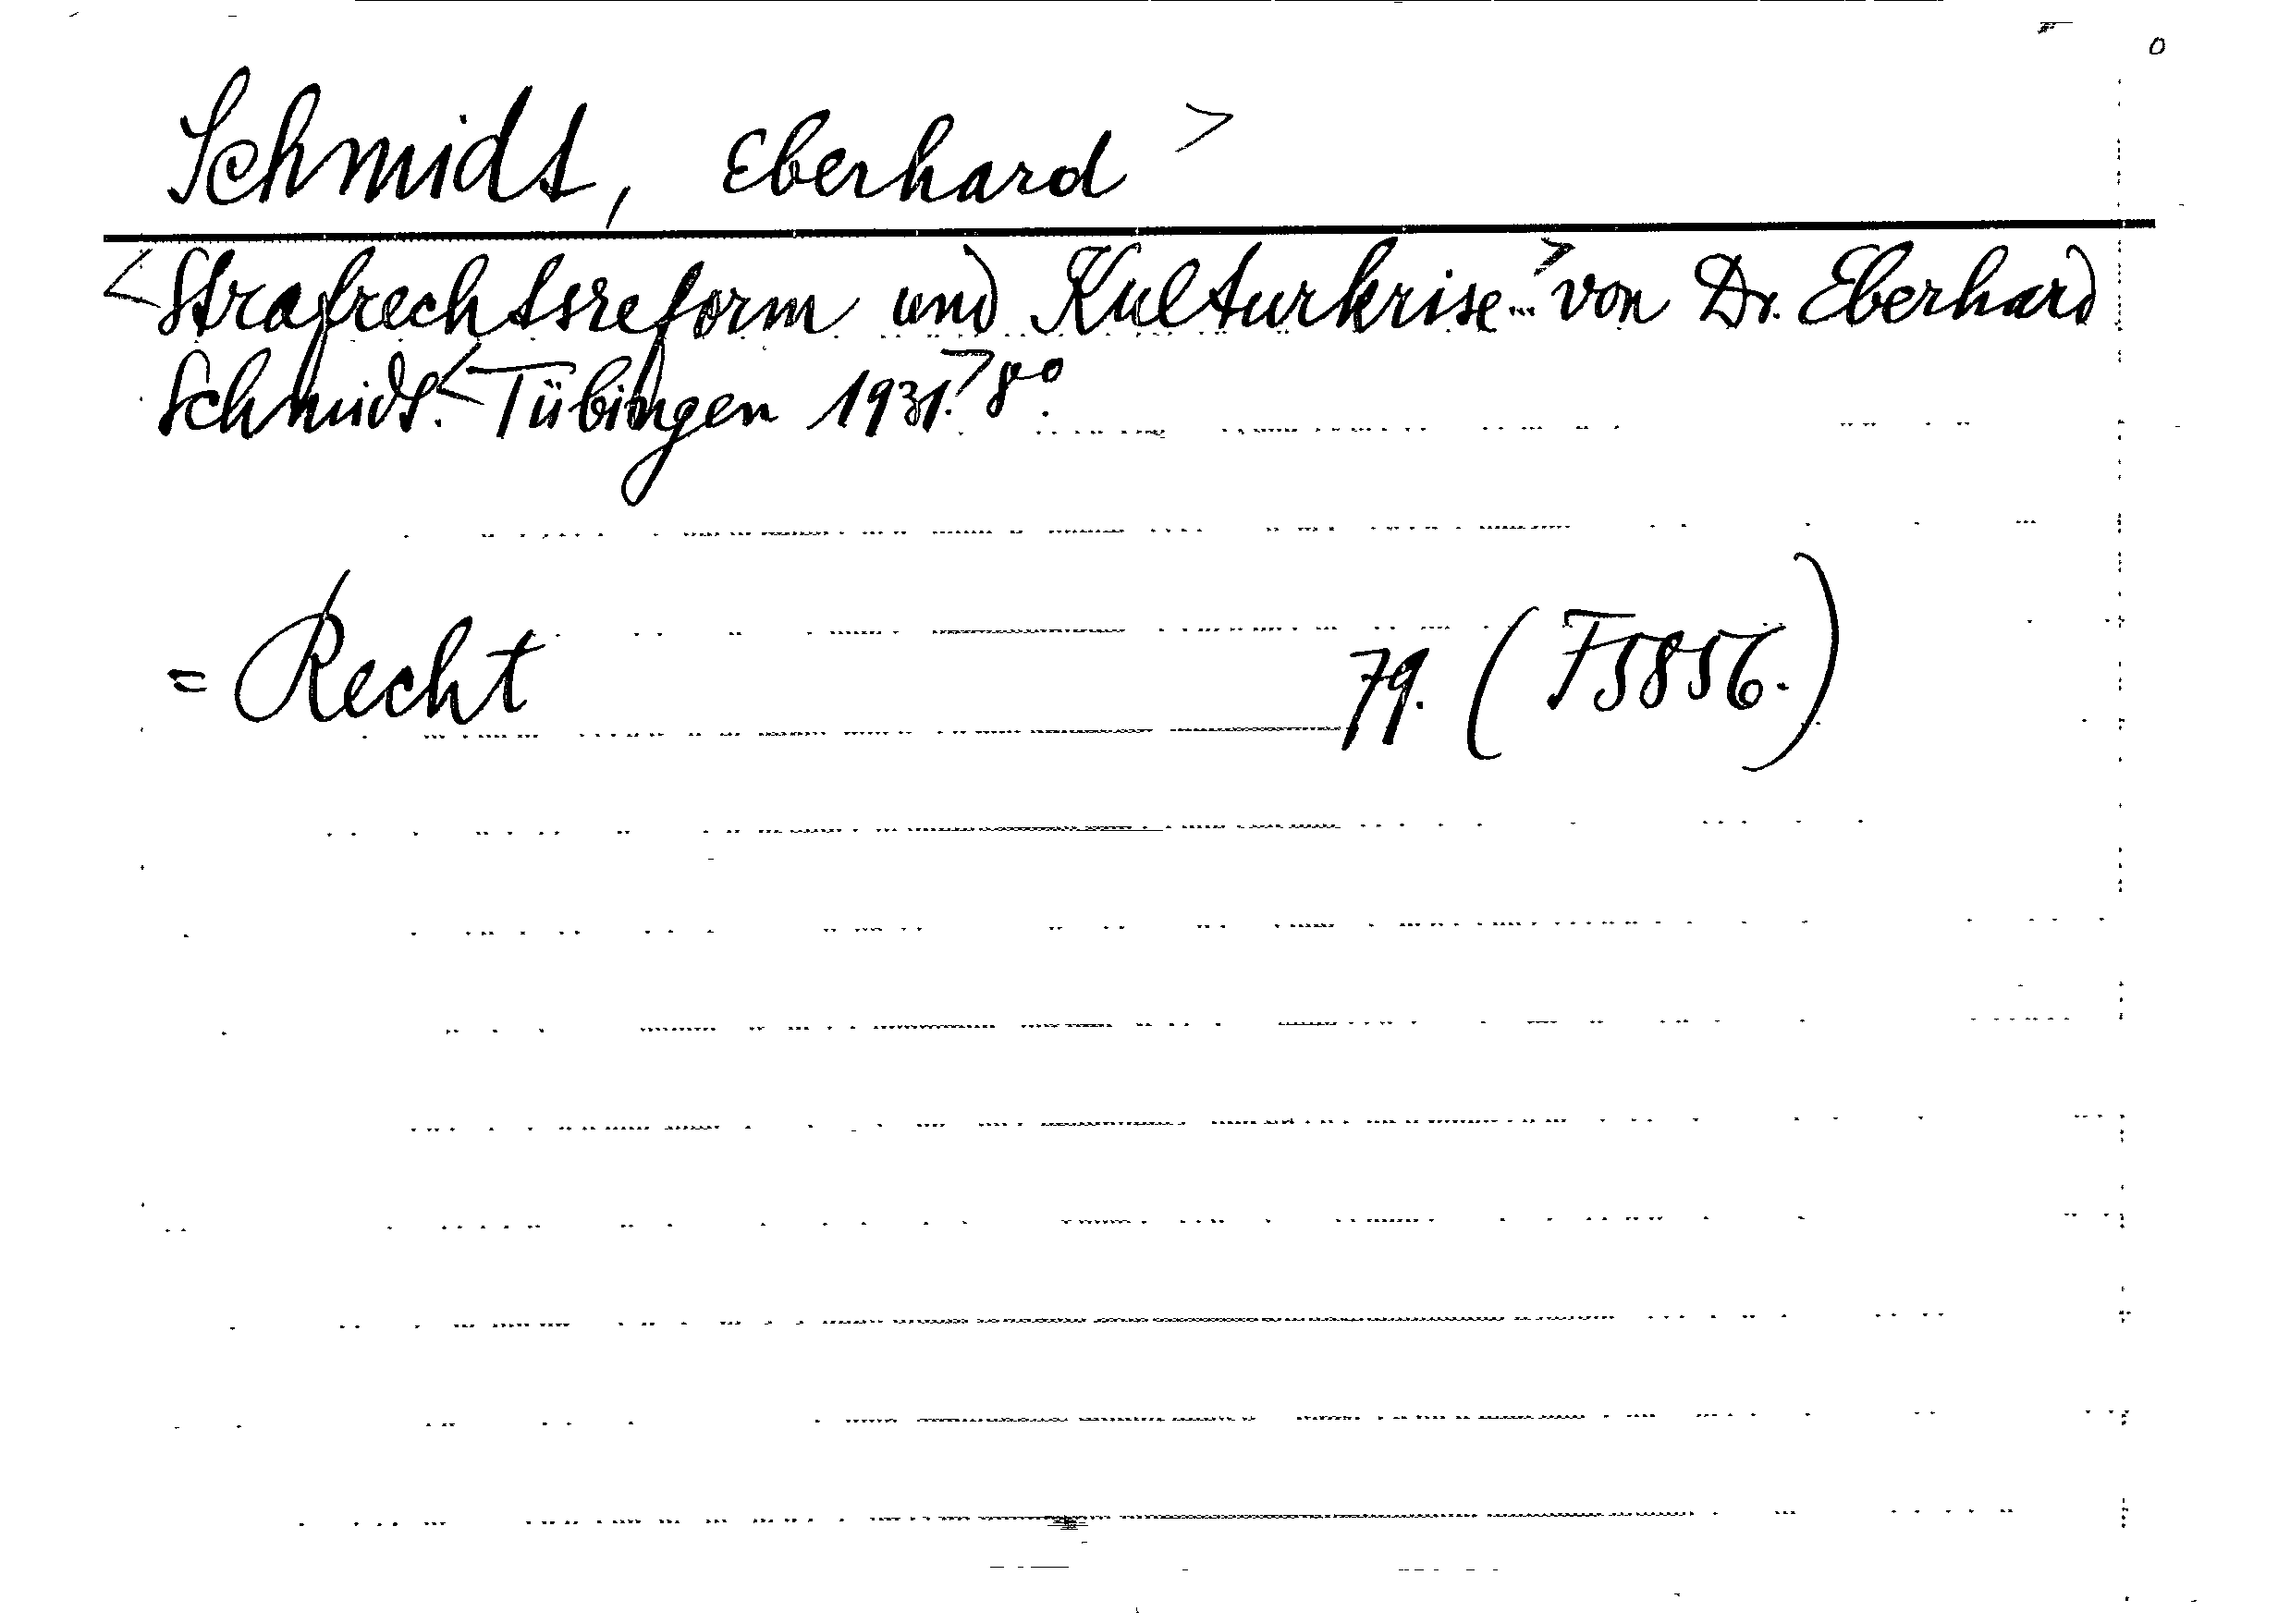 Schmidt, Eberhard >
<Strafrechtsreform und Kulturkrise...> von Dr. Eberhard
Schmidt. <Tübingen 1931.> 8°.
= Recht 79. (F5856.)